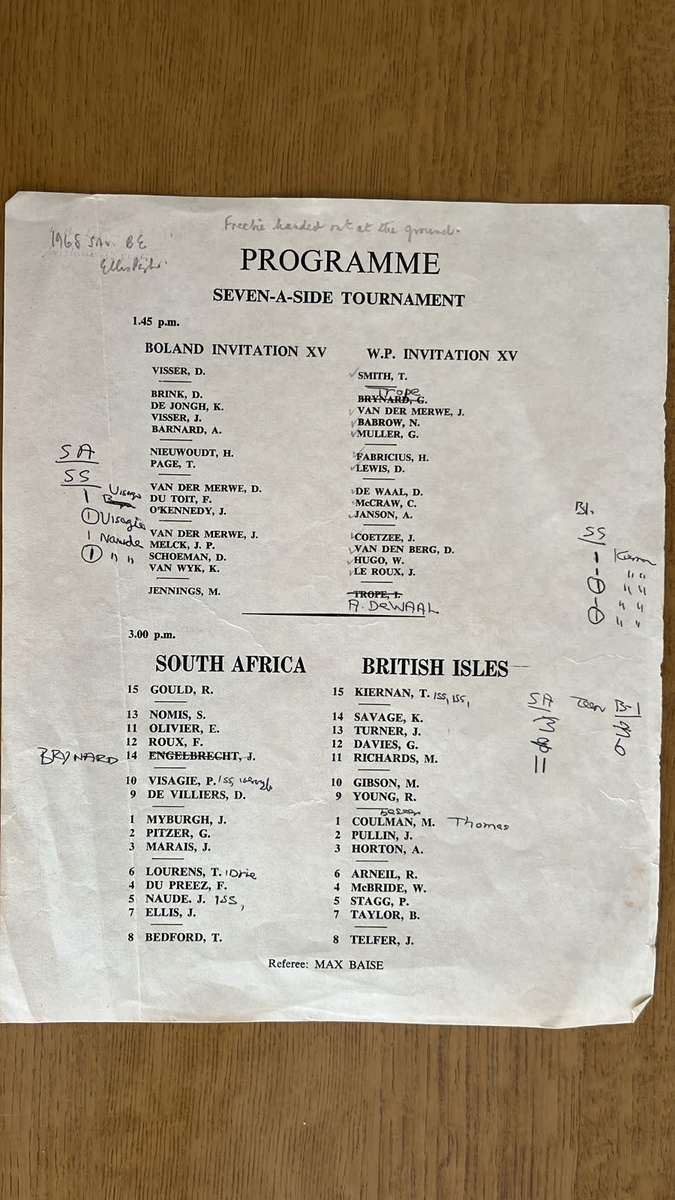 Freebie handed out at the ground.
1968
PROGRAMME
SEVEN-A-SIDE TOURNAMENT
1.45 p.m.
BOLAND INVITATION XV
VISSER, D.
BRINK, D.
DE JONGH, K.
VISSER, J.
BARNARD, A.
NIEUWOUDT, H.
PAGE, T.
VAN DER MERWE, D.
DU TOIT, F.
O'KENNEDY, J.
VAN DER MERWE, J.
MELCK, J. P.
SCHOEMAN, D.
VAN WYK, K.
JENNINGS, M.
W.P. INVITATION XV
SMITH, T.
Trope
BRYNARD, G.
VAN DER MERWE, J.
BABROW, N.
MULLER, G.
FABRICIUS, H.
LEWIS, D.
DE WAAL, D.
McCRAW, C.
JANSON, A.
COETZEE, J.
VAN DEN BERG, D.
HUGO, W.
LE ROUX, J.
TROPE, J.
A. DEWAAL
SA
SS
1 Visagie
1 Visagie
1 Naude
1 " "
SS
" "
" "
" "
3.00 p.m.
SOUTH AFRICA
15 GOULD, R.
13 NOMIS, S.
11 OLIVIER, E.
12 ROUX, F.
BRYNARD 14 ENGELBRECHT, J.
10 VISAGIE, P. 1SS
9 DE VILLIERS, D.
1 MYBURGH, J.
2 PITZER, G.
3 MARAIS, J.
6 LOURENS, T. 1Drie
4 DU PREEZ, F.
5 NAUDE. J. 1SS,
7 ELLIS, J.
8 BEDFORD, T.
BRITISH ISLES
15 KIERNAN, T. 1SS, 1SS,
14 SAVAGE, K.
13 TURNER, J.
12 DAVIES, G.
11 RICHARDS, M.
10 GIBSON, M.
9 YOUNG, R.
1 COULMAN, M. Thomas
2 PULLIN, J.
3 HORTON, A.
6 ARNEIL, R.
4 McBRIDE, W.
5 STAGG, P.
7 TAYLOR, B.
8 TELFER, J.
SA
BI
Referee: MAX BAISE